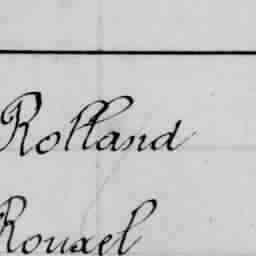 Rolland
Rouxel